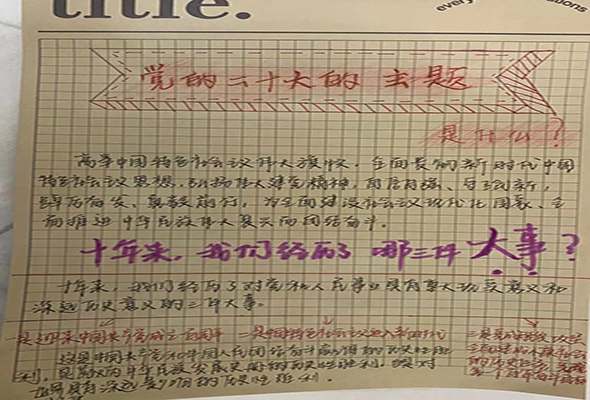 title.
every
党的二十大的主题
是什么?
高举中国特色社会主义伟大旗帜,全面贯彻新时代中国
特色社会主义思想,弘扬伟大建党精神,自信自强、守正创新,
踔厉奋发、勇毅前行,为全面建设社会主义现代化国家、全
面推进中华民族伟大复兴而团结奋斗。
十年来,我们经历了哪三件大事?
十年来,我们经历了对党和人民事业具有重大现实意义和
深远历史意义的三件大事。
一是迎来中国共产党成立一百周年 二是中国特色社会主义进入新时代 三是完成脱贫攻坚
这是中国共产党和中国人民团结奋斗赢得的历史性胜
利,是彪炳中华民族发展史册的历史性胜利,也是对
世界具有深远影响的历史性胜利。